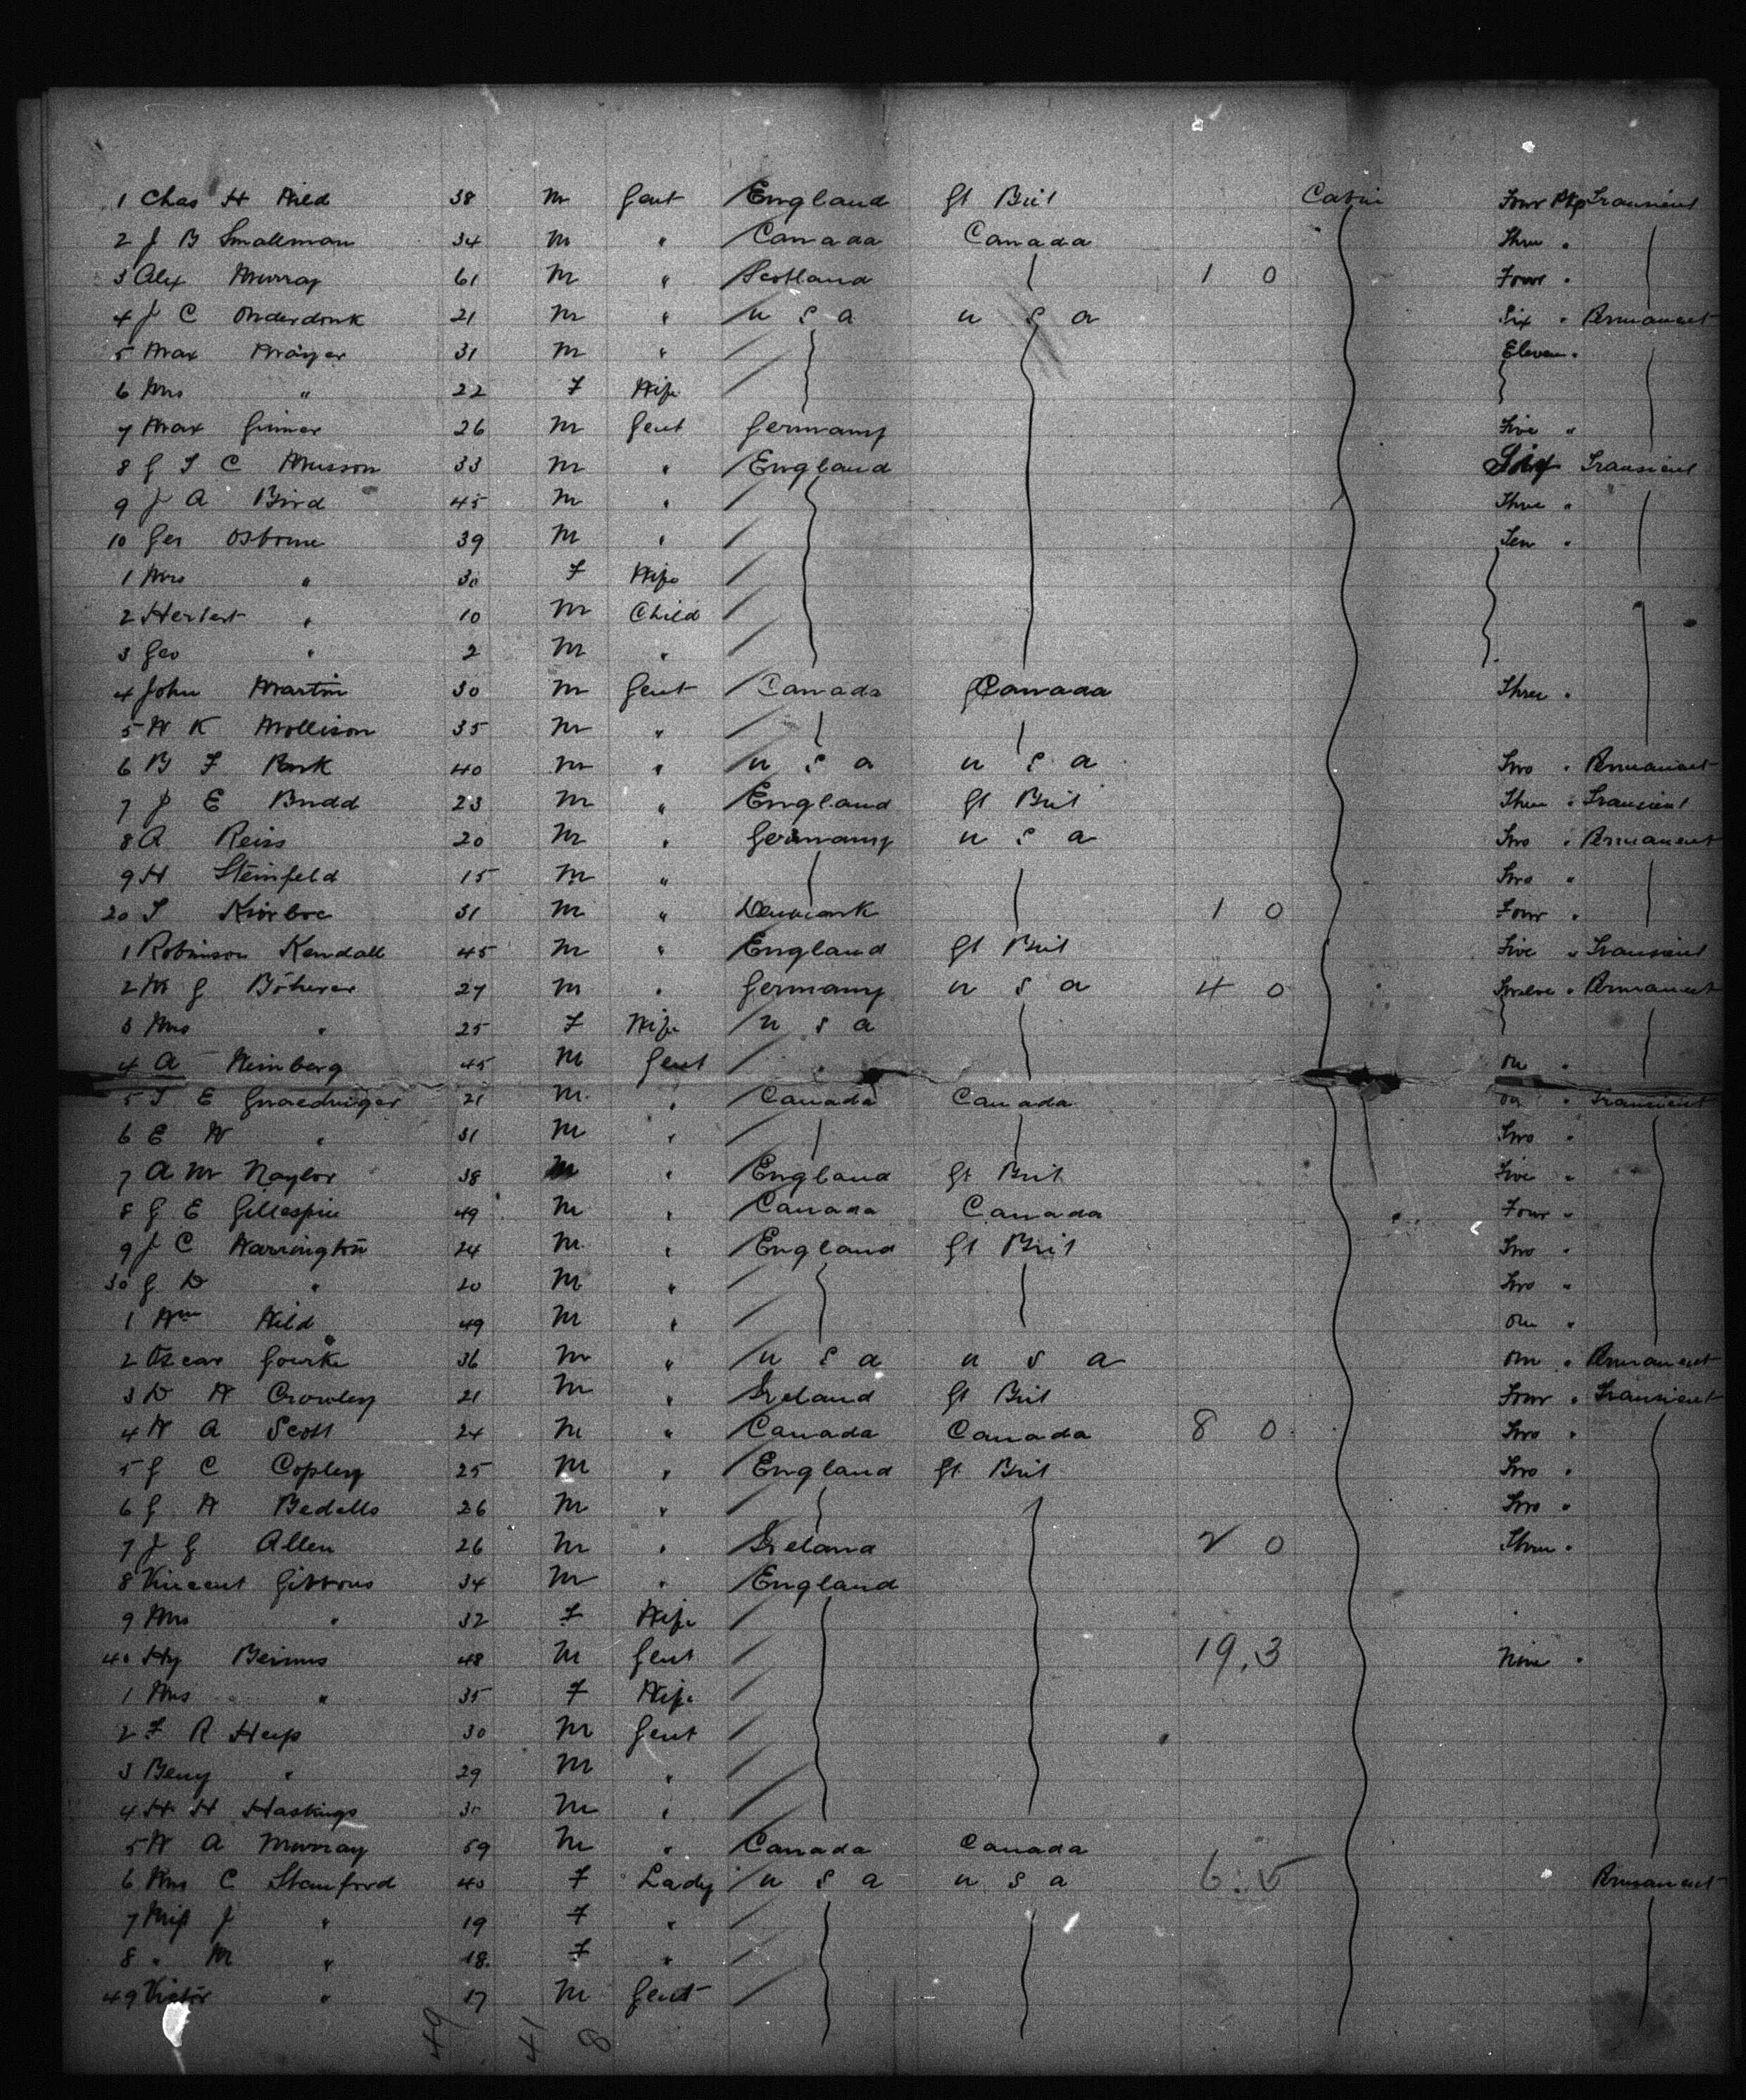 1 Chas H Wild 38 m Gent England Gt Brit Cabin Four Pkgs Transient
2 J B Smallman 34 m " Canada Canada Three "
3 Alex Murray 61 m " Scotland 1 0 Four "
4 J C Onderdonk 21 m " U S A U S A Six " Permanent
5 Max Mayer 31 m " Eleven "
6 Mrs " 22 F Wife
7 Max 26 m Gent Germany Five "
8 G T C Musson 33 m " England Six Transient
9 J A Bird 45 m " Three "
10 Geo Osborne 39 m " Ten "
1 Mrs " 30 F Wife
2 Herbert " 10 m Child
3 Geo " 2 m "
4 John Martin 30 m Gent Canada Canada Three "
5 W K Mollison 35 m "
6 B F 40 m " U S A U S A Two " Permanent
7 J E Budd 23 m " England Gt Brit Three " Transient
8 A Reiss 20 m " Germany U S A Two " Permanent
9 H Steinfeld 15 m " Two "
20 31 m " Denmark 1 0 Four "
1 Robinson Kendall 45 m " England Gt Brit Five " Transient
2 G 27 m " Germany U S A 4 0 Twelve " Permanent
3 Mrs " 25 F Wife U S A
4 A Weinberg 45 m Gent One "
5 T E Gnaedinger 21 m " Canada Canada One " Transient
6 E W " 31 m " Two "
7 A M Naylor 38 m " England Gt Brit Five "
8 G E Gillespie 49 m " Canada Canada Four "
9 J C Warrington 24 m " England Gt Brit Two "
30 G D " 20 m " Two "
1 Wm Wild 49 m " One "
2 Oscar 36 m " U S A U S A One " Permanent
3 D W Crowley 21 m " Ireland Gt Brit Four " Transient
4 W A Scott 24 m " Canada Canada 8 0 Two "
5 G C Copley 25 m " England Gt Brit Two "
6 G W Bedells 26 m " Two "
7 J G Allen 26 m " Ireland 2 0 Three "
8 Vincent Gibbons 34 m " England
9 Mrs " 32 F Wife
40 Hy 48 m Gent 19.3 Nine "
1 Mrs " 35 F Wife
2 F R Heap 30 m Gent
3 Benj " 29 m "
4 H H Hastings 30 m "
5 W A Murray 59 m " Canada Canada
6 Mrs C Stanford 40 F Lady U S A U S A 6.5 Permanent
7 Miss J " 19 F "
8 " M " 18 F "
49 Victor " 17 m Gent
49 41 8